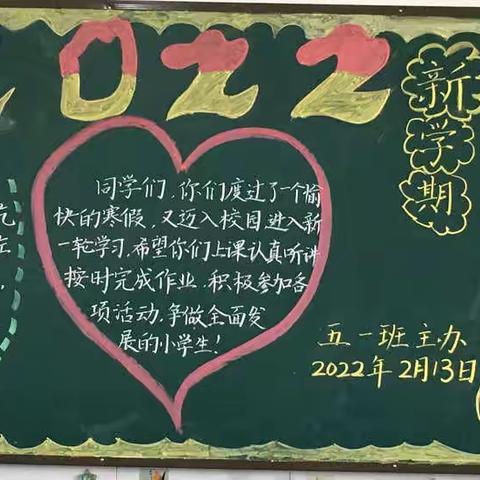 2022
新
学
期
同学们，你们度过了一个愉
快的寒假，又迈入校园进入新
一轮学习，希望你们上课认真听讲
按时完成作业，积极参加各
项活动，争做全面发
展的小学生！
五一班主办
2022年2月13日